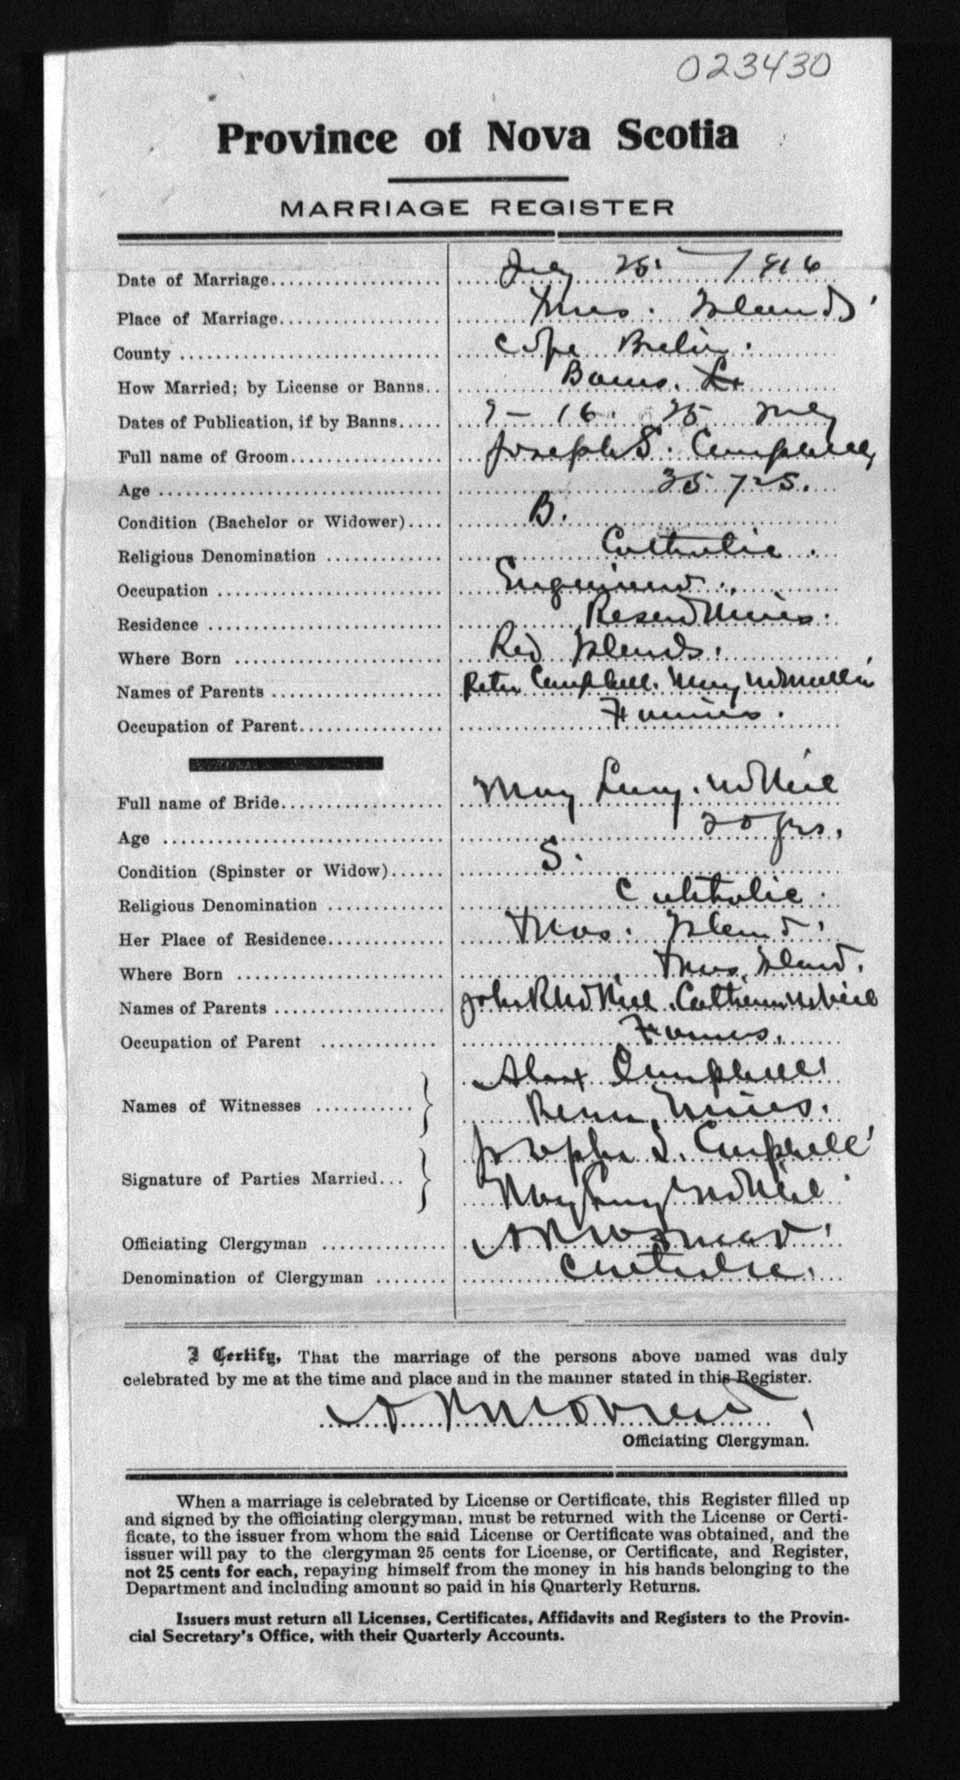 023430
Province of Nova Scotia
MARRIAGE REGISTER
Date of Marriage July 25. 1916
Place of Marriage Xmas. Islands
County Cape Breton.
How Married; by License or Banns Banns.
Dates of Publication, if by Banns 9 - 16. 25 July
Full name of Groom Joseph S. Campbell
Age 35 yrs.
Condition (Bachelor or Widower) B.
Religious Denomination Catholic.
Occupation Engineer.
Residence Reserve Mines.
Where Born Red Islands.
Names of Parents Peter Campbell. Mary McMullin
Occupation of Parent Farmer.
Full name of Bride Mary Lucy. McNeil
Age 20 yrs.
Condition (Spinster or Widow) S.
Religious Denomination Catholic.
Her Place of Residence Xmas. Island.
Where Born Xmas Island.
Names of Parents John R McNeil. Catherine McNeil
Occupation of Parent Farmer.
Alex Campbell
Names of Witnesses Mines.
Joseph S. Campbell
Signature of Parties Married Mary Lucy McNeil
Officiating Clergyman
Denomination of Clergyman Catholic.
I Certify, That the marriage of the persons above named was duly
celebrated by me at the time and place and in the manner stated in this Register.
Officiating Clergyman.
When a marriage is celebrated by License or Certificate, this Register filled up
and signed by the officiating clergyman, must be returned with the License or Certi-
ficate, to the issuer from whom the said License or Certificate was obtained, and the
issuer will pay to the clergyman 25 cents for License, or Certificate, and Register,
not 25 cents for each, repaying himself from the money in his hands belonging to the
Department and including amount so paid in his Quarterly Returns.
Issuers must return all Licenses, Certificates, Affidavits and Registers to the Provin-
cial Secretary's Office, with their Quarterly Accounts.